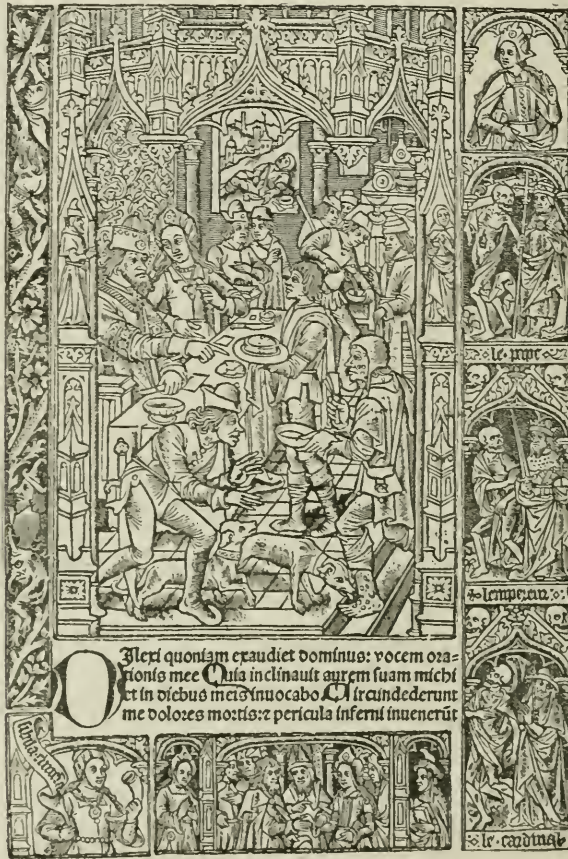 DIlexi quoniam exaudiet dominus: vocem ora=
tionis mee Quia inclinauit aurem suam michi
et in diebus meis inuocabo Circundederunt
me dolores mortis:⁊ pericula inferni inuenerūt
le pape
lempereur
le cardinal